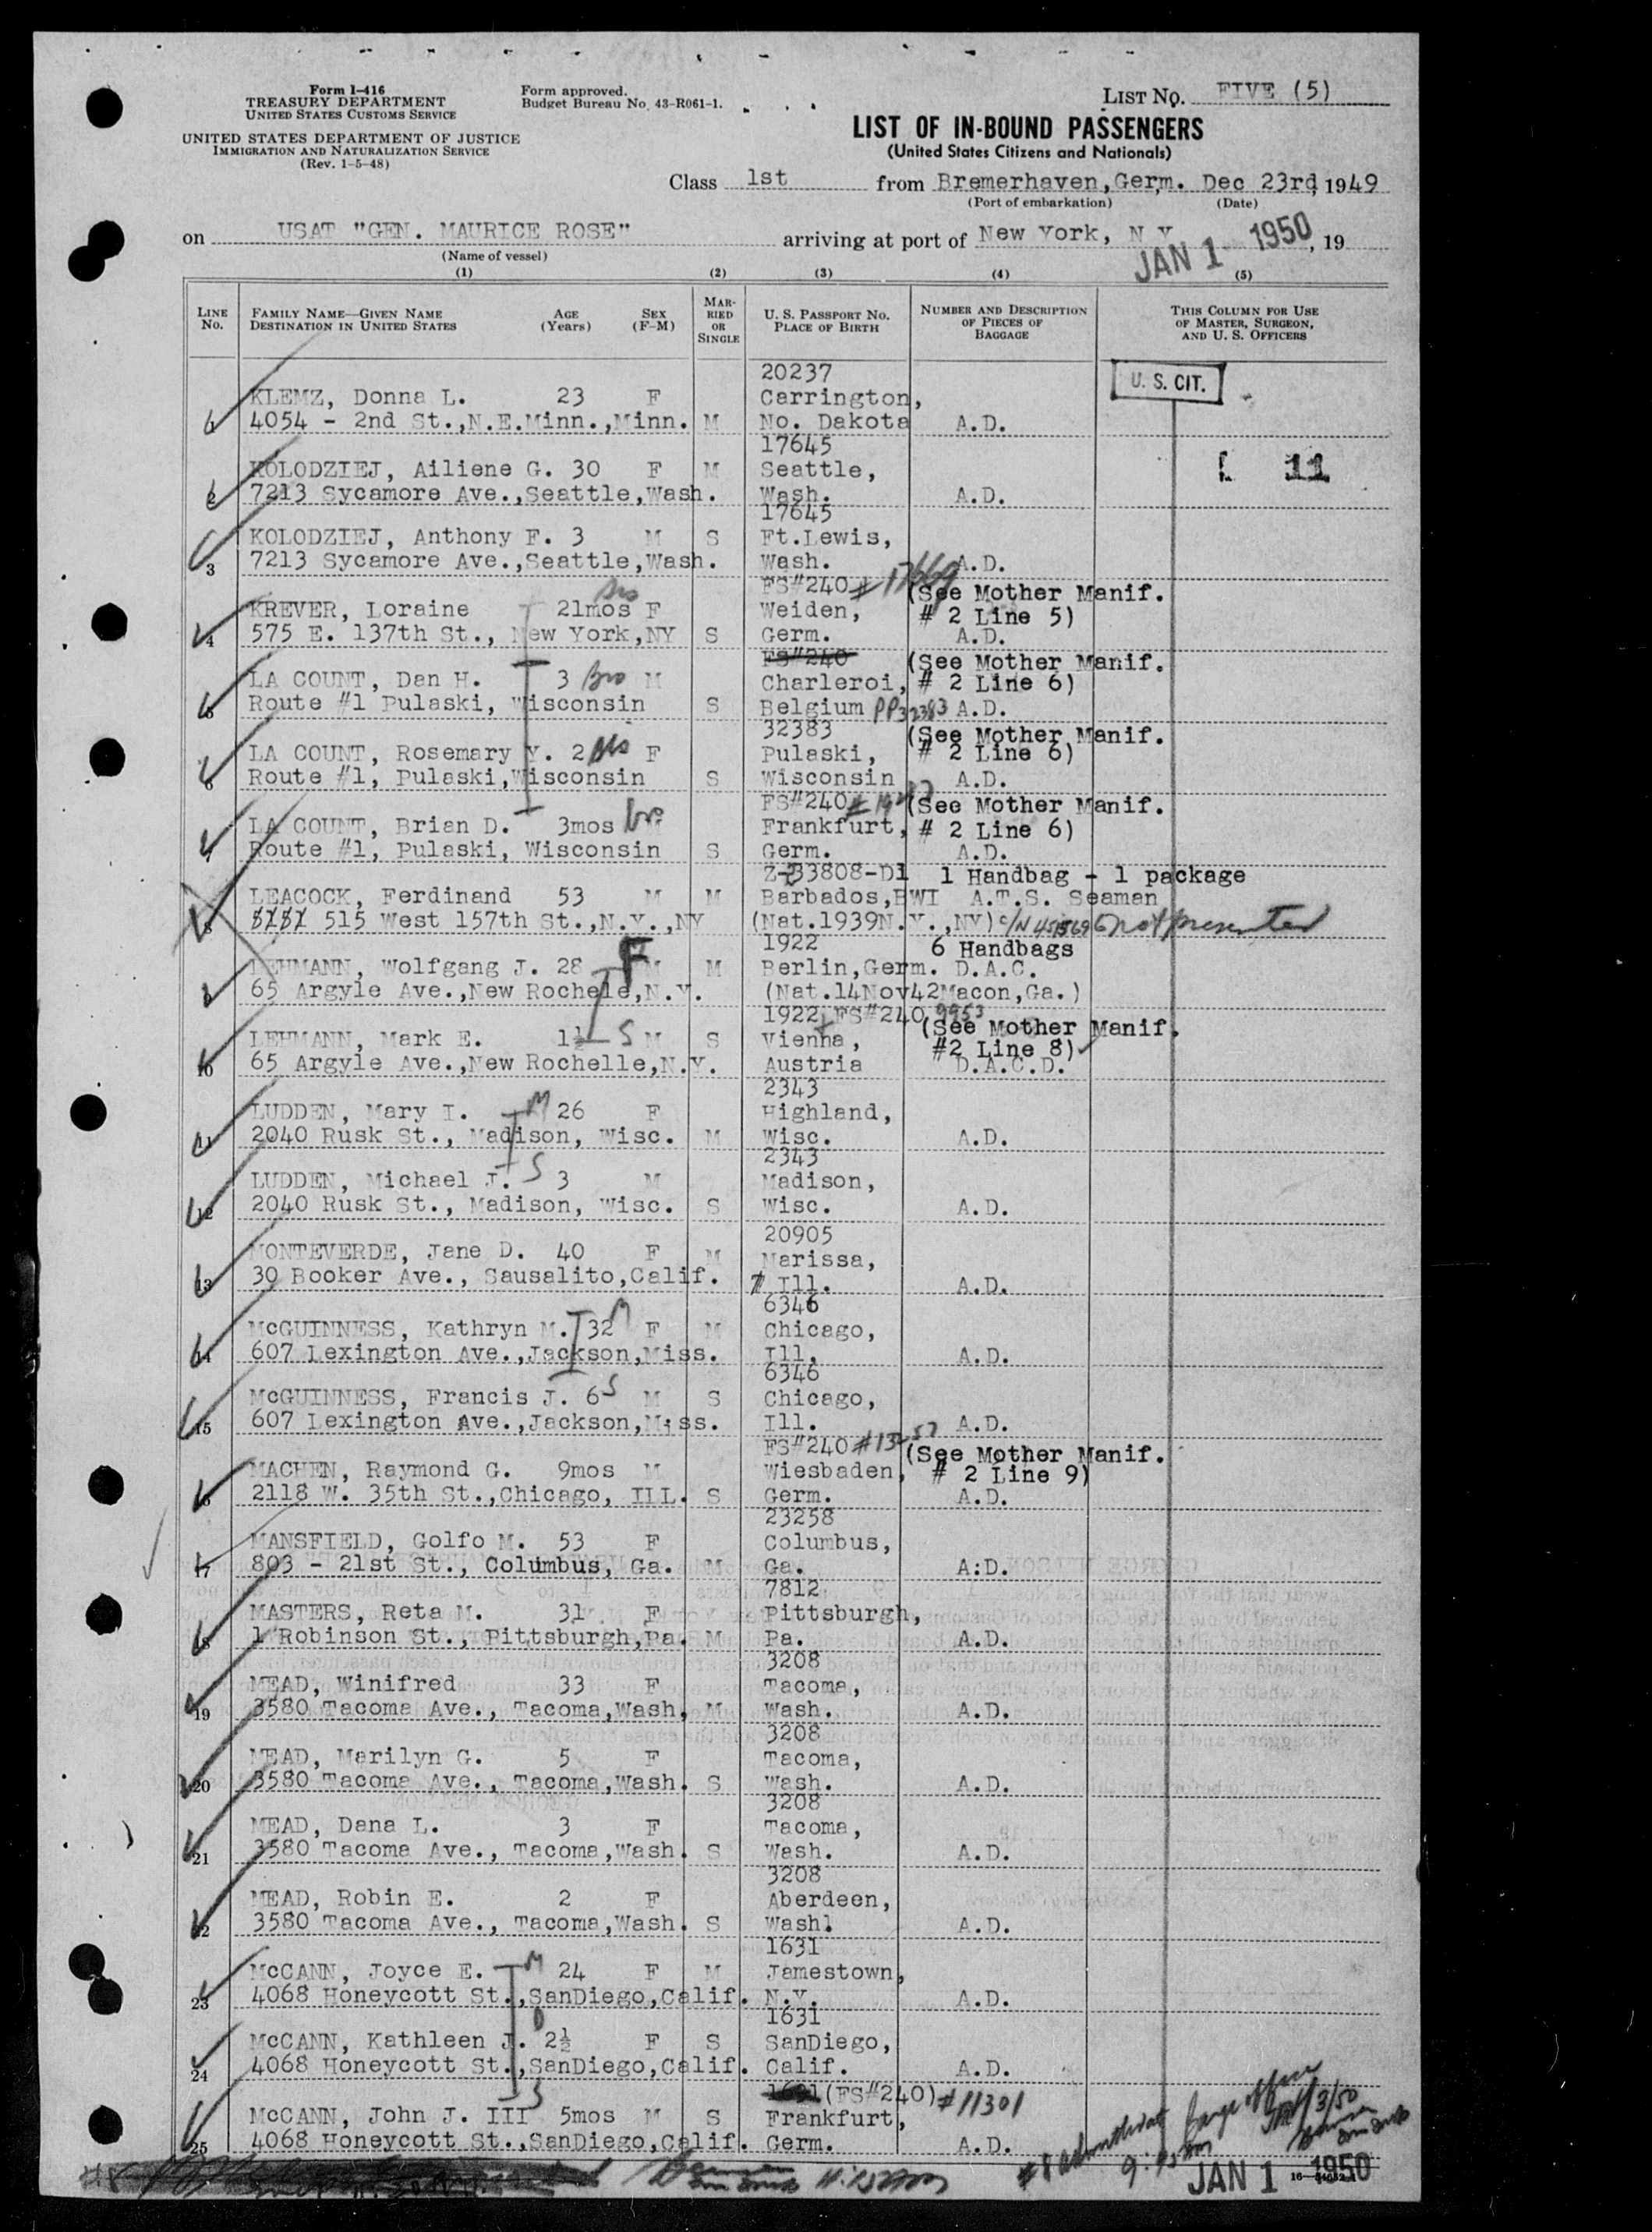 Form I-416
TREASURY DEPARTMENT
UNITED STATES CUSTOMS SERVICE
UNITED STATES DEPARTMENT OF JUSTICE
IMMIGRATION AND NATURALIZATION SERVICE
(Rev. 1-5-48)
Form approved.
Budget Bureau No. 43-R061-1.
LIST NO. FIVE (5)
LIST OF IN-BOUND PASSENGERS
(United States Citizens and Nationals)
Class 1st from Bremerhaven, Germ. Dec 23rd, 1949
(Port of embarkation) (Date)
on USAT "GEN. MAURICE ROSE" arriving at port of New York, N Y JAN 1 1950, 19
(Name of vessel)
(1) (2) (3) (4) (5)
LINE No. FAMILY NAME—GIVEN NAME DESTINATION IN UNITED STATES AGE (Years) SEX (F-M) MARRIED OR SINGLE U. S. PASSPORT NO. PLACE OF BIRTH NUMBER AND DESCRIPTION OF PIECES OF BAGGAGE THIS COLUMN FOR USE OF MASTER, SURGEON, AND U. S. OFFICERS
20237
U. S. CIT.
KLEMZ, Donna L. 23 F Carrington,
4054 - 2nd St.,N.E.Minn.,Minn. M No. Dakota A.D.
17645
11
KOLODZIEJ, Ailiene G. 30 F M Seattle,
2 7213 Sycamore Ave.,Seattle,Wash. Wash. A.D.
17645
KOLODZIEJ, Anthony F. 3 M S Ft.Lewis,
3 7213 Sycamore Ave.,Seattle,Wash. Wash. A.D.
FS#240 # 17669 (See Mother Manif.
KREVER, Loraine 21mos F Weiden, # 2 Line 5)
4 575 E. 137th St., New York,NY S Germ. A.D.
FS#240 (See Mother Manif.
LA COUNT, Dan H. 3 Bro M Charleroi, # 2 Line 6)
5 Route #1 Pulaski, Wisconsin S Belgium PP32383 A.D.
32383 (See Mother Manif.
LA COUNT, Rosemary Y. 2 F Pulaski, # 2 Line 6)
6 Route #1, Pulaski,Wisconsin S Wisconsin A.D.
FS#240 (See Mother Manif.
LA COUNT, Brian D. 3mos Frankfurt, # 2 Line 6)
7 Route #1, Pulaski, Wisconsin S Germ. A.D.
1 Handbag - 1 package
LEACOCK, Ferdinand 53 M M Barbados,BWI A.T.S. Seaman
8 515 West 157th St.,N.Y.,NY (Nat.1939N.Y.,NY) not presented
1922 6 Handbags
LEHMANN, Wolfgang J. 28 F M M Berlin,Germ. D.A.C.
9 65 Argyle Ave.,New Rochele,N.Y. (Nat.14Nov42Macon,Ga.)
1922 FS#240 9953 (See Mother Manif.
LEHMANN, Mark E. 1½ S M S Vienna, #2 Line 8)
10 65 Argyle Ave.,New Rochelle,N.Y. Austria D.A.C.D.
2343
LUDDEN, Mary I. M 26 F Highland,
11 2040 Rusk St., Madison, Wisc. M Wisc. A.D.
2343
LUDDEN, Michael J. S 3 M Madison,
12 2040 Rusk St., Madison, Wisc. S Wisc. A.D.
20905
MONTEVERDE, Jane D. 40 F M Marissa,
13 30 Booker Ave., Sausalito,Calif. Ill. A.D.
6346
McGUINNESS, Kathryn M. 32 M F M Chicago,
14 607 Lexington Ave.,Jackson,Miss. Ill. A.D.
6346
McGUINNESS, Francis J. 6 S M S Chicago,
15 607 Lexington Ave.,Jackson,Miss. Ill. A.D.
FS#240 #13257 (See Mother Manif.
MACHEN, Raymond G. 9mos M Wiesbaden, # 2 Line 9)
16 2118 W. 35th St.,Chicago, ILL. S Germ. A.D.
23258
MANSFIELD, Golfo M. 53 F Columbus,
17 803 - 21st St., Columbus, Ga. M Ga. A:D.
7812
MASTERS, Reta M. 31 F Pittsburgh,
18 1 Robinson St., Pittsburgh,Pa. M Pa. A.D.
3208
MEAD, Winifred 33 F Tacoma,
19 3580 Tacoma Ave., Tacoma,Wash. M Wash. A.D.
3208
MEAD, Marilyn G. 5 F Tacoma,
20 3580 Tacoma Ave., Tacoma,Wash. S Wash. A.D.
3208
MEAD, Dana L. 3 F Tacoma,
21 3580 Tacoma Ave., Tacoma,Wash. S Wash. A.D.
3208
MEAD, Robin E. 2 F Aberdeen,
22 3580 Tacoma Ave., Tacoma,Wash. S Wash. A.D.
1631
McCANN, Joyce E. M 24 F M Jamestown,
23 4068 Honeycott St.,SanDiego,Calif. N.Y. A.D.
1631
McCANN, Kathleen J. D 2½ F S SanDiego,
24 4068 Honeycott St.,SanDiego,Calif. Calif. A.D.
1631 (FS#240) #11301
McCANN, John J. III S 5mos M S Frankfurt,
25 4068 Honeycott St.,SanDiego,Calif. Germ. A.D.
JAN 1 1950